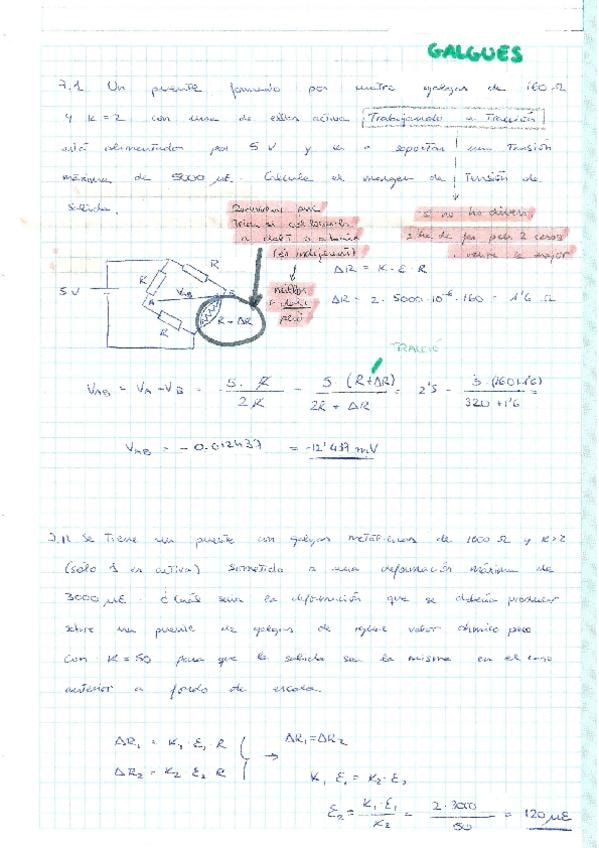 GALGUES
7.1 Un puente formado por cuatro galgas de 160 Ω
y K=2 con una de ellas activa Trabajando a Tracción
está alimentado por 5 V y soportan una Tensión
máxima de 5000 µE. Calcula el margen de Tensión de
Salida.
si no ho diuen,
s'ha de fer pels 2 casos
i veure la major
ΔR = K · E · R
ΔR = 2 · 5000·10⁻⁶ · 160 = 1'6 Ω
5V
R
R
A
VAB
B
R
R + ΔR
TRACCIÓ
VAB = VA - VB = 5·R/2R - 5·(R+ΔR)/2R + ΔR = 2'5 - 5·(160+1'6)/320+1'6 =
VAB = -0.012437 = -12'437 mV
Se Tiene un puente con galgas metálicas de 1000 Ω y K=2
(solo 1 es activa) Sometida a una deformación máxima de
3000 µE. ¿Cuál sera la deformación que se debería producir
sobre un puente de galgas de igual valor ohmico pero
con K=50 para que la salida sea la misma en el caso
anterior a fondo de escala.
ΔR₁ = K₁ · E₁ · R
ΔR₂ = K₂ E₂ R
→ ΔR₁=ΔR₂
K₁ E₁ = K₂·E₂
E₂ = K₁·E₁/K₂ = 2·3000/50 = 120 µE